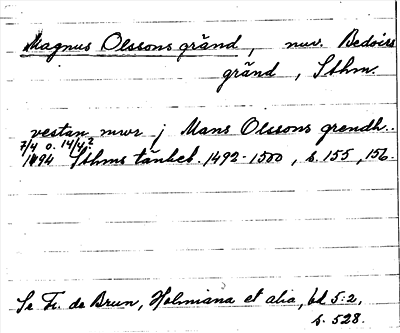 Magnus Olssons gränd, nuv. Bedoirs
gränd, Sthm.
vestan mwr j Mans Olssons grendh..
7/4 o. 14/4
1494 Sthms tänkeb. 1492-1500, s. 155, 156.
Se Fr. de Brun, Holmiana et alia, bd 5:2,
s. 528.